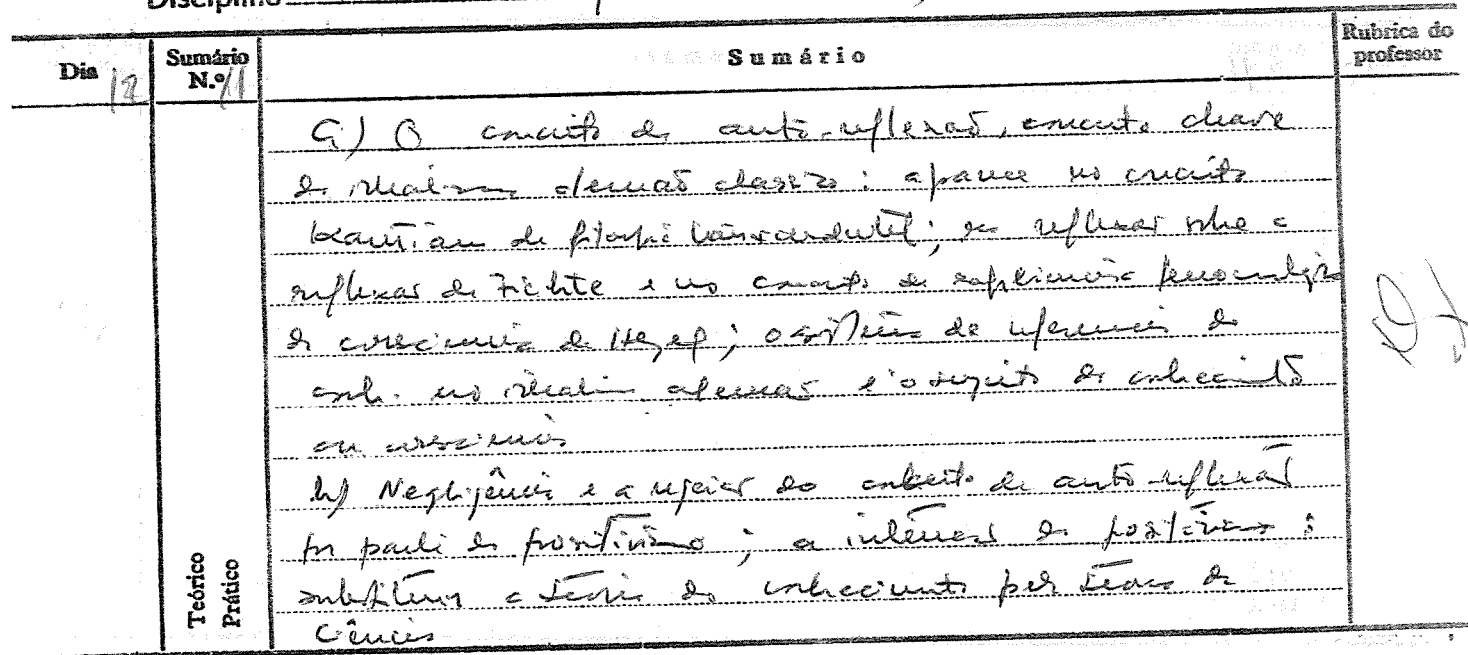 Disciplina
Dia 12
Sumário N.º 11
Sumário
Rubrica do professor
G) O conceito de auto-reflexão, conceito chave
do idealismo alemão clássico: aparece no conceito
kantiano de filosofia transcendental; na reflexão sobre a
reflexão de Fichte e no conceito de experiência fenomenológica
da consciência de Hegel; o sistema de referência do
conh. no idealismo alemão é o sujeito do conhecimento
ou consciência
h) Negligência e a rejeição do conceito de auto-reflexão
por parte do positivismo; a intenção do positivismo:
substituir a teoria do conhecimento pela teoria da
Ciência
Teórico
Prático